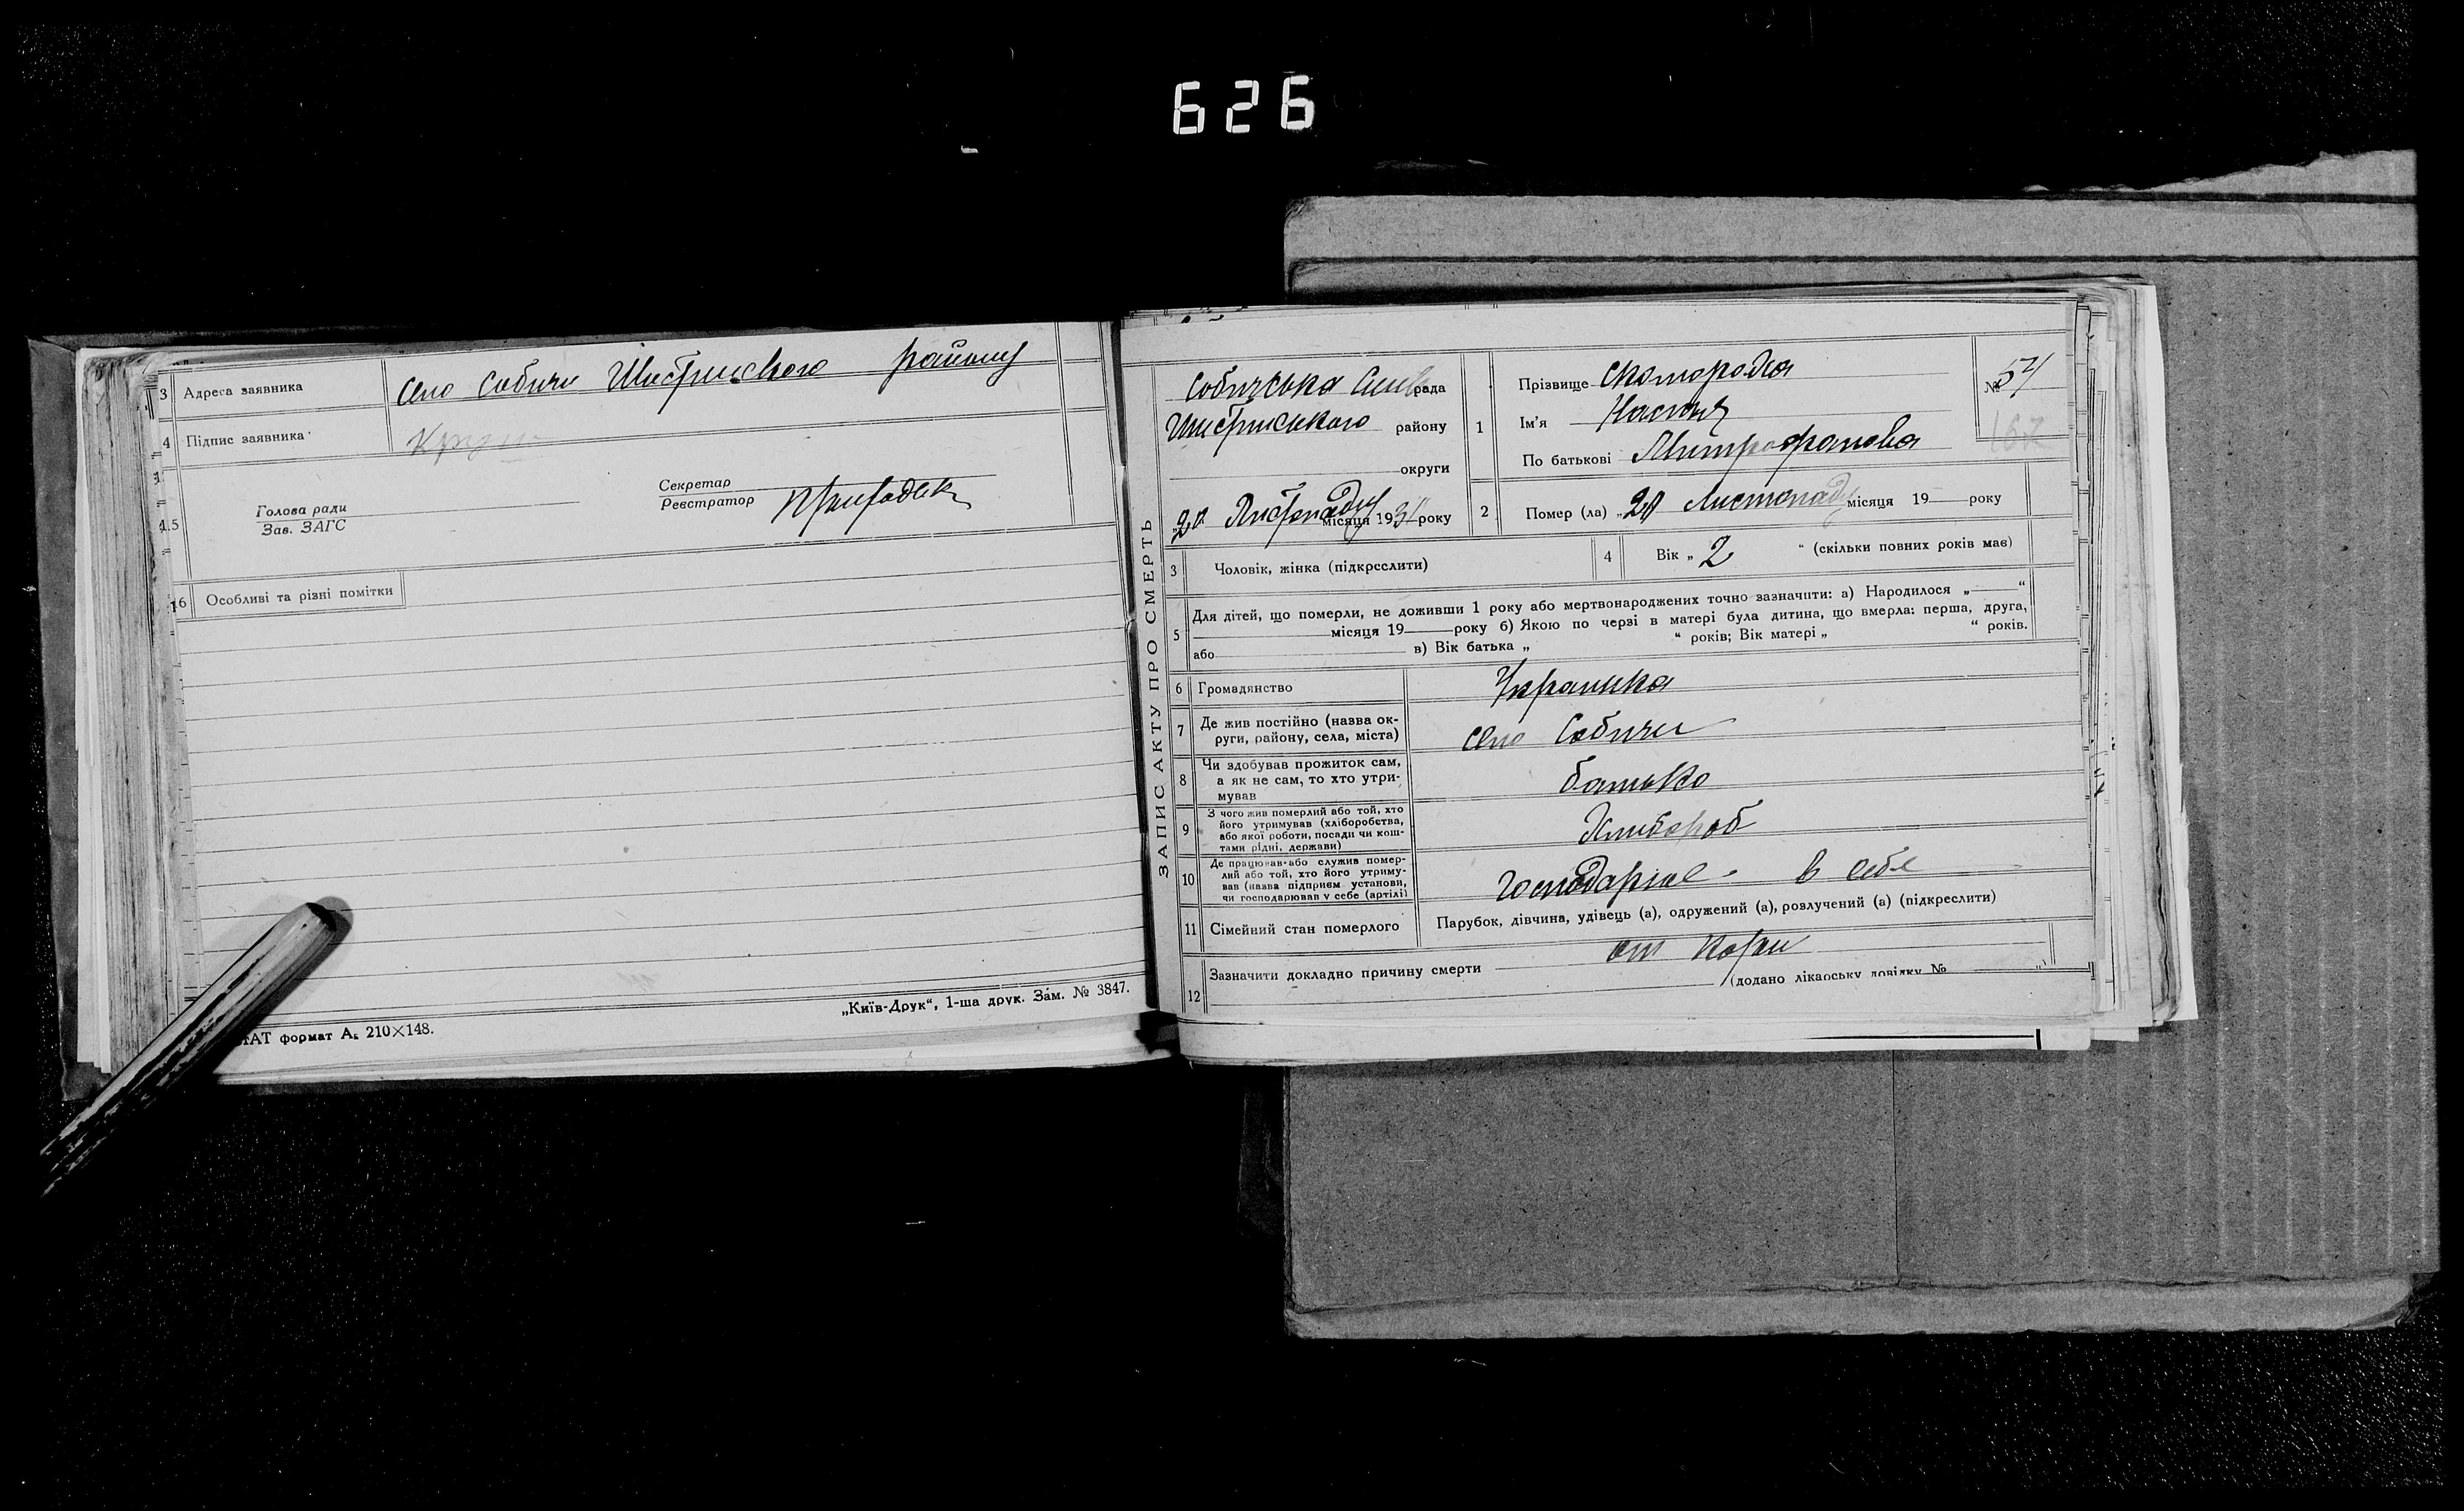 626
3 Адреса заявника село Собичи Шистринского району
4 Підпис заявника
Голова ради
Зав. ЗАГС
Секретар
Реєстратор
15
16 Особливі та різні помітки
„Київ-Друк“, 1-ша друк. Зам. № 3847.
формат А₅ 210×148.
ЗАПИС АКТУ ПРО СМЕРТЬ
Собичська рада
району
округи
20 Листопаду місяця 193 року
1 Прізвище Скомороха
Ім'я Настя
По батькові Митрофановна
№ 54
167
2 Помер (ла) „20 Листопаду місяця 19 року
3 Чоловік, жінка (підкреслити)
4 Вік „ 2 “ (скільки повних років має)
5 Для дітей, що померли, не доживши 1 року або мертвонароджених точно зазначити: а) Народилося „ “
місяця 19 року б) Якою по черзі в матері була дитина, що вмерла: перша, друга,
або в) Вік батька „ “ років; Вік матері „ “ років.
6 Громадянство Украинка
7 Де жив постійно (назва ок-
руги, району, села, міста) село Собичи
8 Чи здобував прожиток сам,
а як не сам, то хто утри-
мував батько
9 З чого жив померлий або той, хто
його утримував (хліборобства,
або якої роботи, посади чи кош-
тами рідні, держави) Хлибороб
10 Де працював або служив помер-
лий або той, хто його утриму-
вав (назва підприєм установи,
чи господарював у себе (артілі) господарює в себе
11 Сімейний стан померлого Парубок, дівчина, удівець (а), одружений (а), розлучений (а) (підкреслити)
12 Зазначити докладно причину смерти от кори
(додано лікарську довідку №